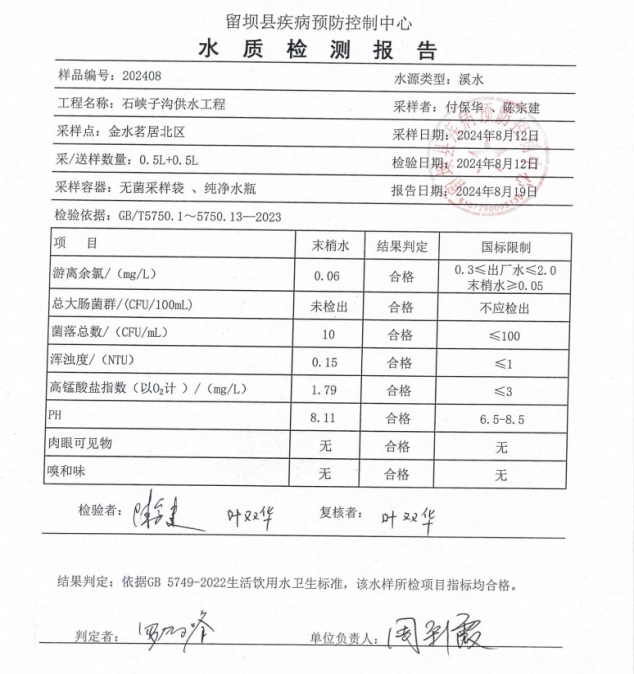 留坝县疾病预防控制中心
水 质 检 测 报 告
样品编号：202408 水源类型：溪水
工程名称：石峡子沟供水工程 采样者：付保华 、陈宗建
采样点：金水茗居北区 采样日期：2024年8月12日
采/送样数量：0.5L+0.5L 检验日期：2024年8月12日
采样容器：无菌采样袋 、纯净水瓶 报告日期：2024年8月19日
检验依据：GB/T5750.1～5750.13—2023
项 目 末梢水 结果判定 国标限制
游离余氯/（mg/L） 0.06 合格 0.3≤出厂水≤2.0
末梢水≥0.05
总大肠菌群/(CFU/100mL) 未检出 合格 不应检出
菌落总数/（CFU/mL） 10 合格 ≤100
浑浊度/（NTU） 0.15 合格 ≤1
高锰酸盐指数（以O₂计 ）/（mg/L） 1.79 合格 ≤3
PH 8.11 合格 6.5-8.5
肉眼可见物 无 合格 无
嗅和味 无 合格 无
检验者： 叶双华 复核者： 叶双华
结果判定：依据GB 5749-2022生活饮用水卫生标准，该水样所检项目指标均合格。
判定者： 单位负责人：